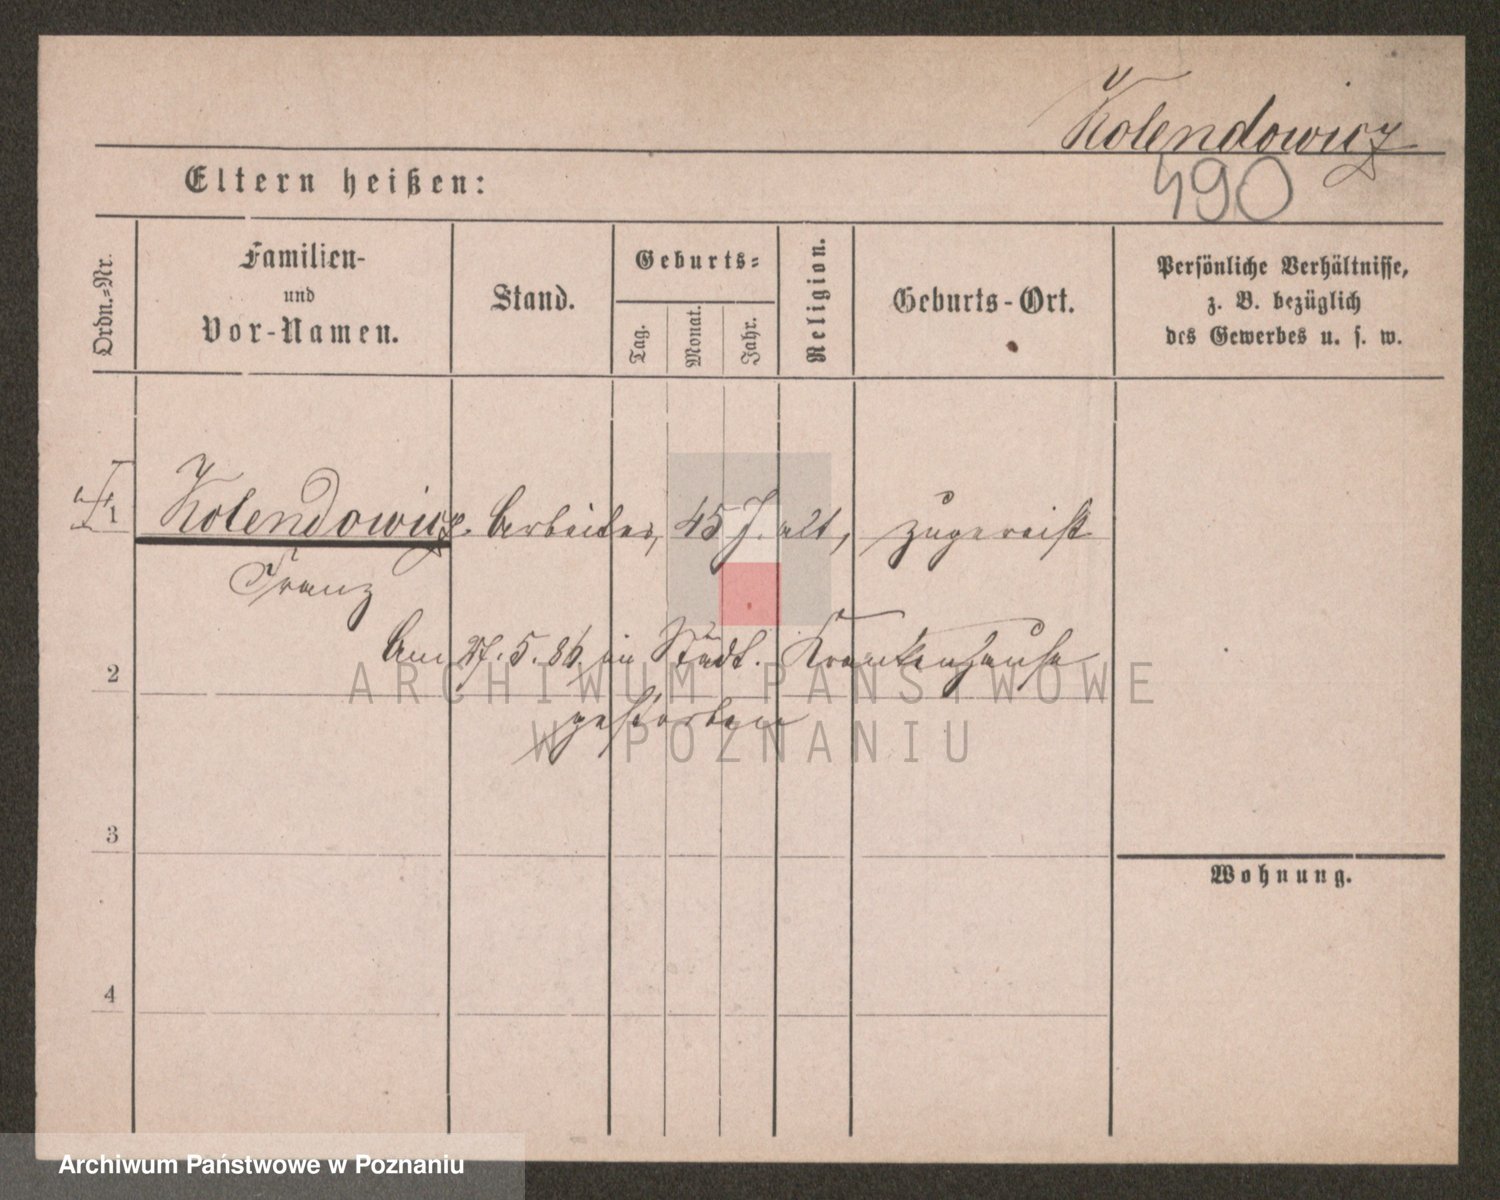 Kolendowicz
490
Eltern heißen:
Ordn.-Nr.
Familien-
und
Vor-Namen.
Stand.
Geburts-
Tag.
Monat.
Jahr.
Religion.
Geburts-Ort.
Persönliche Verhältnisse,
z. B. bezüglich
des Gewerbes u. s. w.
1 Kolendowicz Arbeiter, 45 J. alt, zugereist
Franz
Am 27.5.86. im Städt. Krankenhause
2
gestorben
ARCHIWUM PAŃSTWOWE
W POZNANIU
3
Wohnung.
4
Archiwum Państwowe w Poznaniu